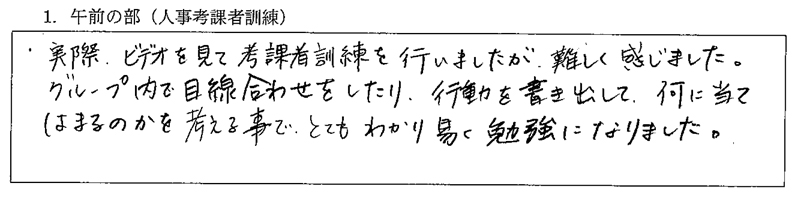 1. 午前の部（人事考課者訓練）
・実際、ビデオを見て考課者訓練を行いましたが、難しく感じました。
グループ内で目線合わせをしたり、行動を書き出して、何に当て
はまるのかを考える事で、とてもわかり易く勉強になりました。